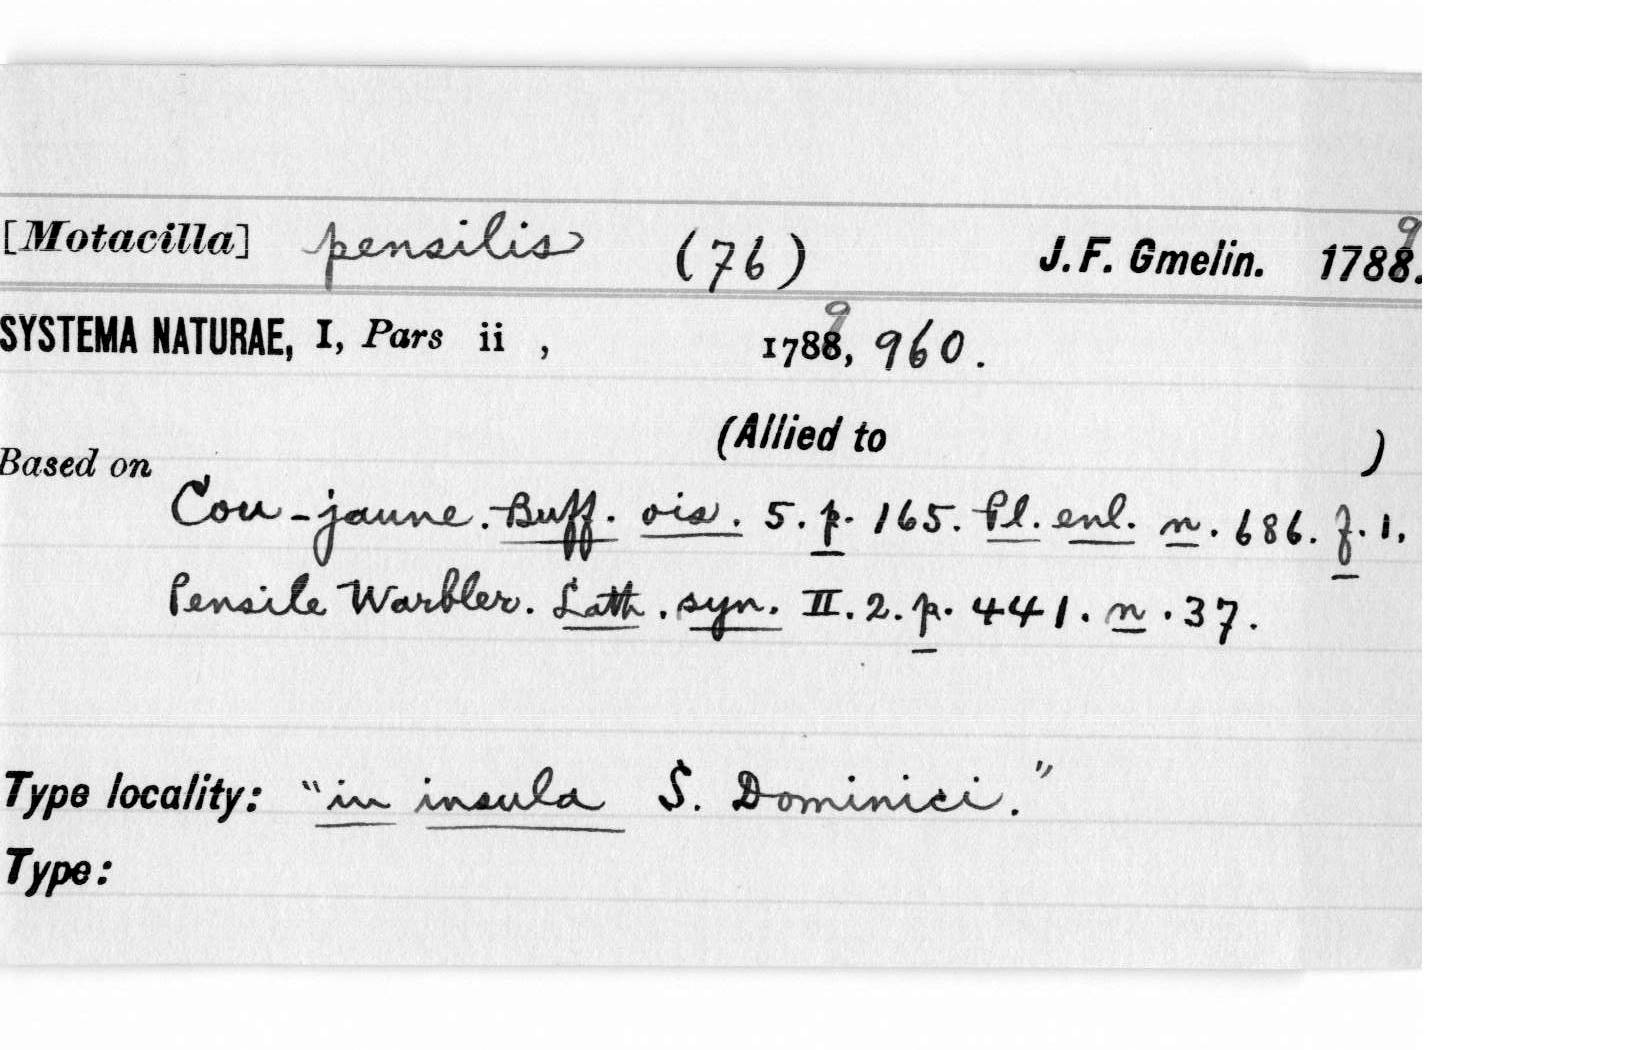 [Motacilla] pensilis (76) J. F. Gmelin. 1788. 9
SYSTEMA NATURAE, I, Pars ii , 1788, 9 960.
(Allied to )
Based on
Cou-jaune. Buff. ois. 5. p. 165. Pl. enl. n. 686. f. 1.
Pensile Warbler. Lath. syn. II. 2. p. 441. n. 37.
Type locality: "in insula S. Dominici."
Type: